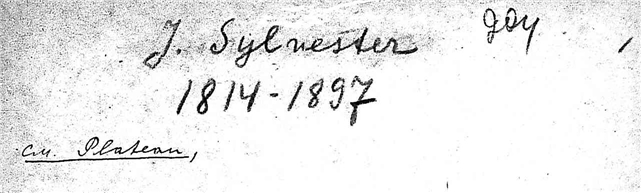 J. Sylvester
1814-1897
см. Plateau,